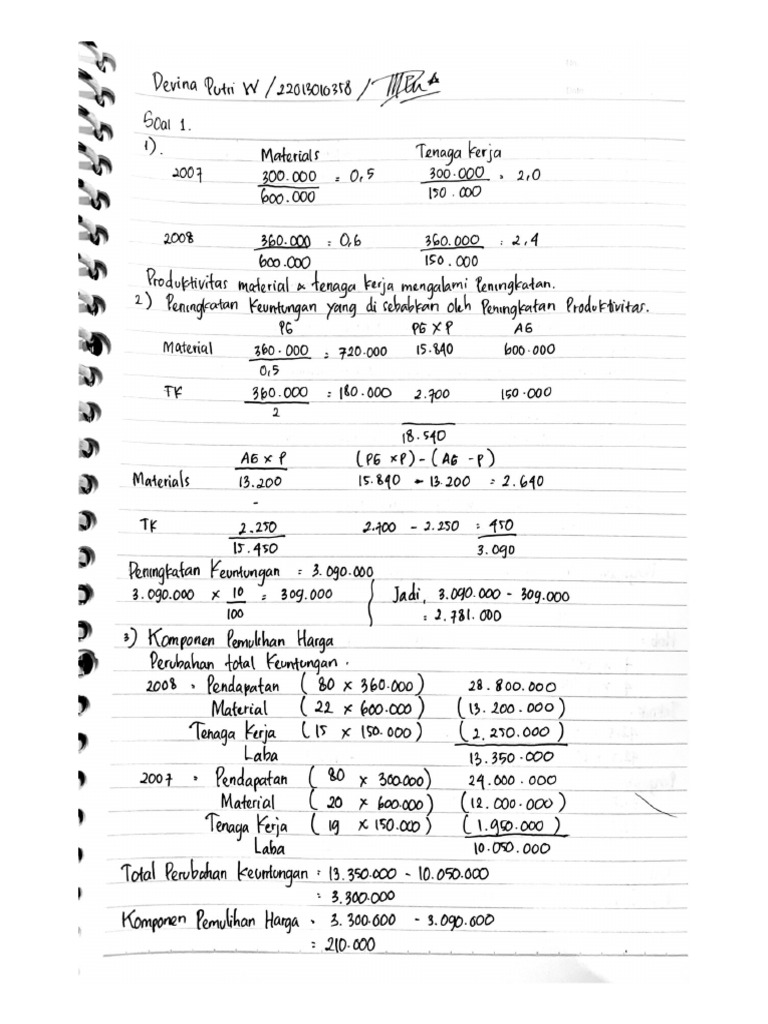 Devina Putri W / 22013010358 /
Soal 1.
1). Materials Tenaga Kerja
2007 300.000 / 600.000 = 0,5 300.000 / 150.000 = 2,0
2008 360.000 / 600.000 = 0,6 360.000 / 150.000 = 2,4
Produktivitas material & tenaga kerja mengalami Peningkatan.
2) Peningkatan Keuntungan yang di sebabkan oleh Peningkatan Produktivitas.
PG PG X P AG
Material 360.000 / 0,5 = 720.000 15.840 600.000
TK 360.000 / 2 = 180.000 2.700 150.000
18.540
AG x P (PG x P) - (AG - P)
Materials 13.200 15.840 - 13.200 = 2.640
-
TK 2.250 2.700 - 2.250 = 450
15.450 3.090
Peningkatan Keuntungan = 3.090.000
3.090.000 x 10 / 100 = 309.000 Jadi, 3.090.000 - 309.000
= 2.781.000
3) Komponen Pemulihan Harga
Perubahan total Keuntungan.
2008 = Pendapatan (80 x 360.000) 28.800.000
Material (22 x 600.000) (13.200.000)
Tenaga Kerja (15 x 150.000) (2.250.000)
Laba 13.350.000
2007 = Pendapatan (80 x 300.000) 24.000.000
Material (20 x 600.000) (12.000.000)
Tenaga Kerja (19 x 150.000) (1.950.000)
Laba 10.050.000
Total Perubahan Keuntungan = 13.350.000 - 10.050.000
= 3.300.000
Komponen Pemulihan Harga = 3.300.000 - 3.090.000
= 210.000